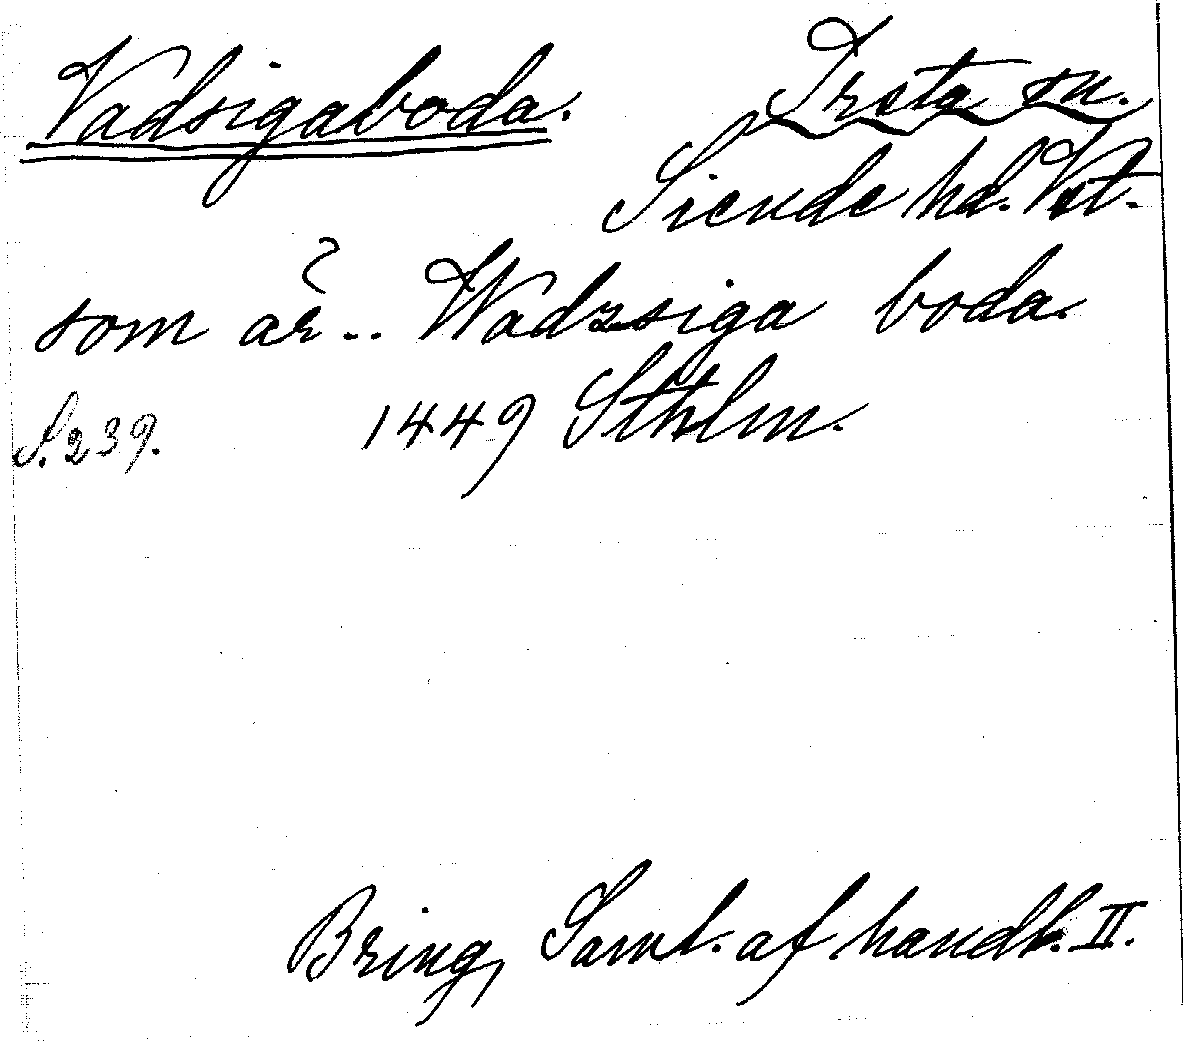 Vadsigaboda. Irsta sn.
Siende hd. Vst.
som är .. Wadzsiga boda.
S. 239. 1449 Sthlm.
Bring, Saml. af handl. II.